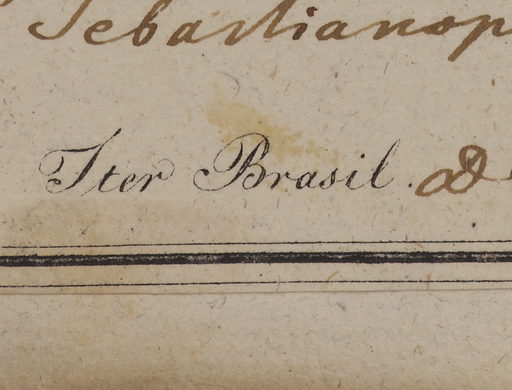 Sebastianop
Iter Brasil.